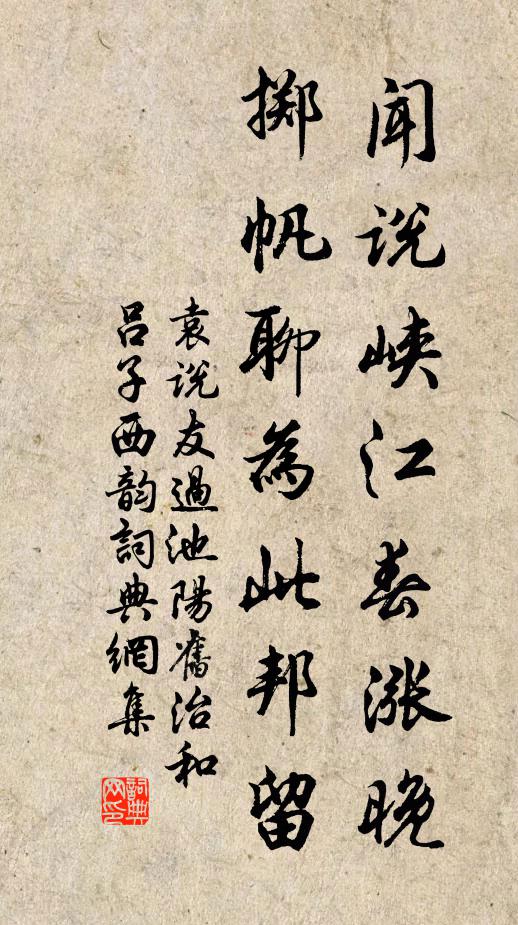 闻说峡江春涨晚
掷帆聊为此邦留
袁说友过池阳旧治和
吕子西韵词典网集
词典网印